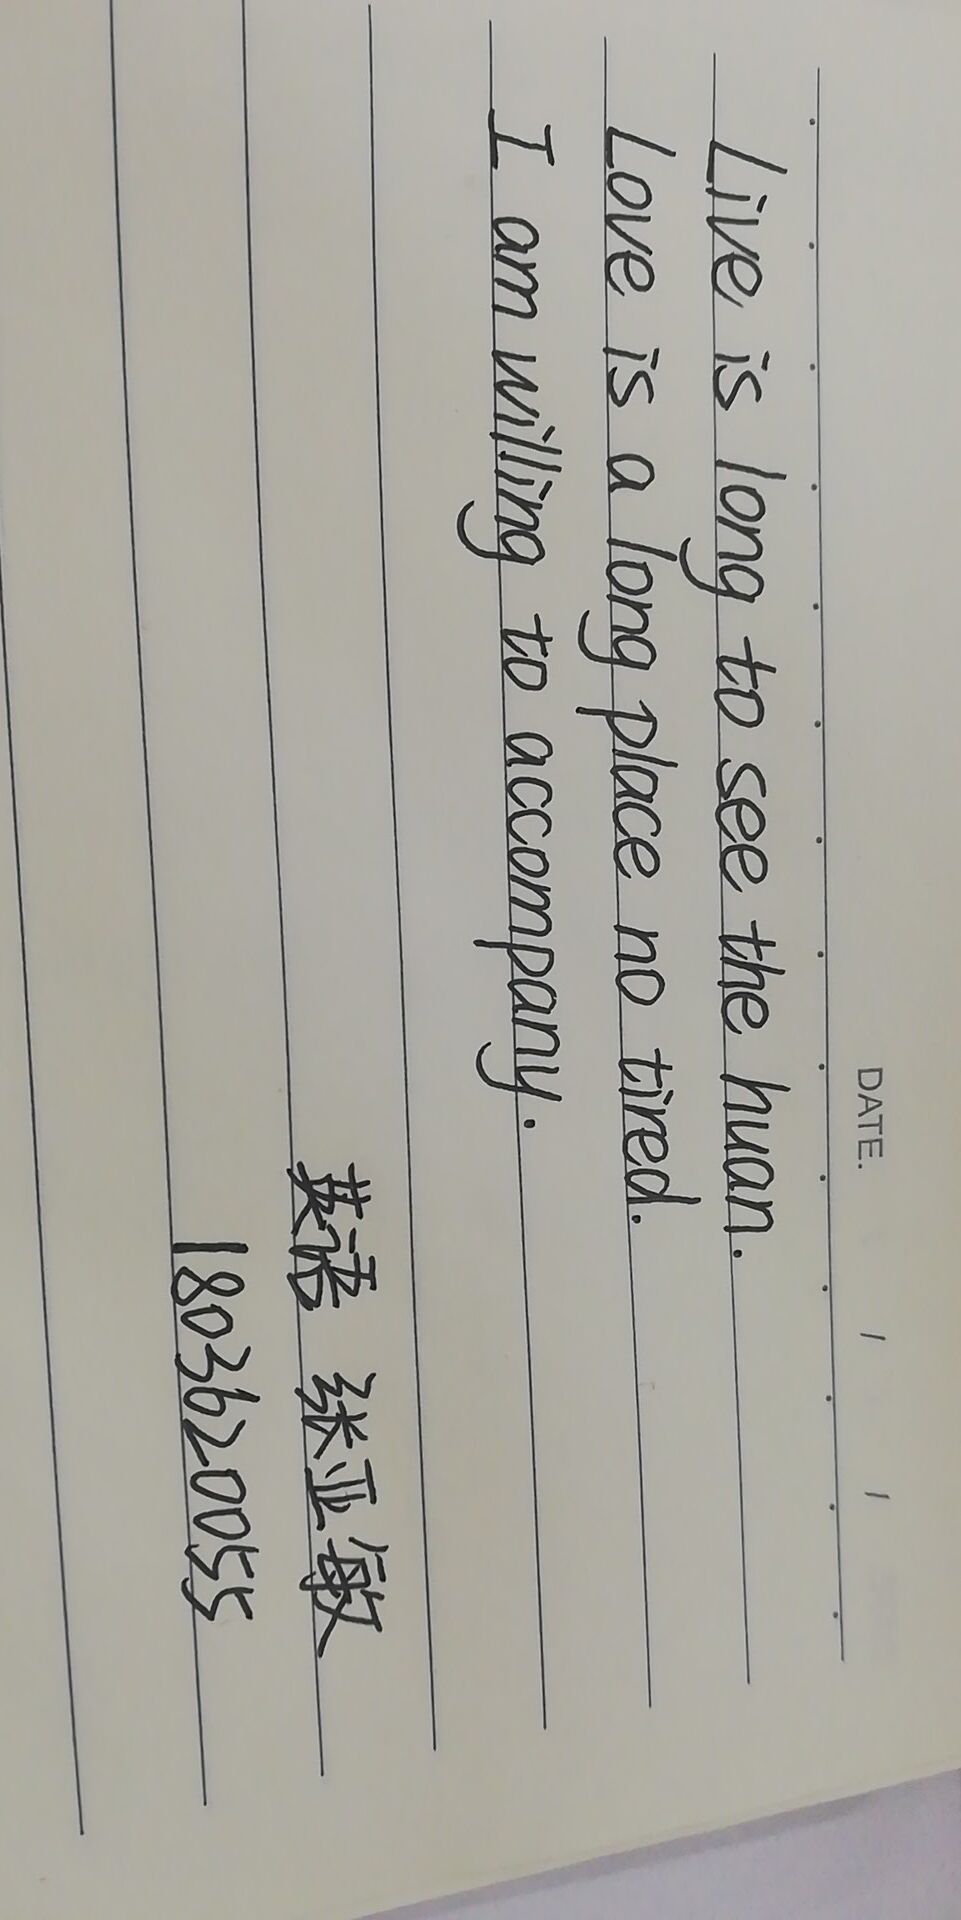 DATE. / /
Live is long to see the huan.
Love is a long place no tired.
I am willing to accompany.
英语 张亚敏
1803620055